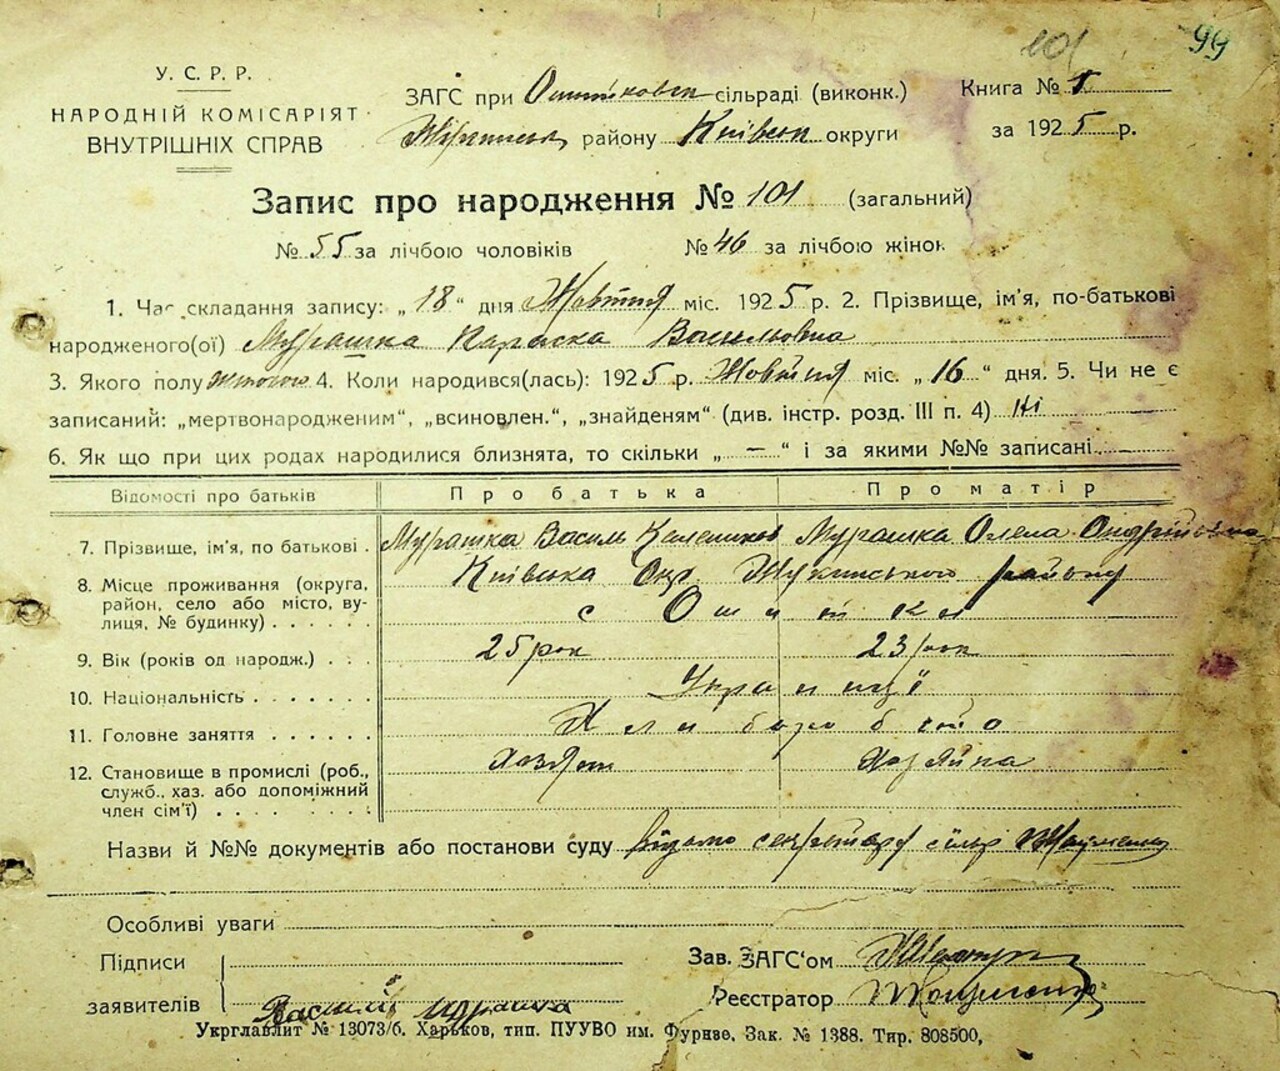 101 99
У. С. Р. Р.
НАРОДНІЙ КОМІСАРІЯТ
ВНУТРІШНІХ СПРАВ
ЗАГС при сільраді (виконк.)
району Київськ округи
Книга № 1
за 1925 р.
Запис про народження № 101 (загальний)
№ 55 за лічбою чоловіків № 46 за лічбою жінок
1. Час складання запису: „18“ дня Жовтня міс. 1925 р. 2. Прізвище, ім'я, по-батькові
народженого(ої) Мурашка Параска Васильовна
3. Якого полу жіночого 4. Коли народився(лась): 1925 р. Жовтня міс. „16“ дня. 5. Чи не є
записаний: „мертвонародженим“, „всиновлен.“, „знайденям“ (див. інстр. розд. III п. 4) Ні
6. Як що при цих родах народилися близнята, то скільки „ — “ і за якими №№ записані —
Відомості про батьків Про батька Про матір
7. Прізвище, ім'я, по батькові . Мурашка Василь Мурашка Олена Андріївна
8. Місце проживання (округа, район, село або місто, вулиця, № будинку) . . . . . Київська Окр Жукинського району
с Ошитки
9. Вік (років од народж.) . . . 25 рок 23 рок
10. Національність . . . . . . . Українці
11. Головне заняття . . . . . . Хлиборобство
12. Становище в промислі (роб., служб., хаз. або допоміжний член сім'ї) . . . . . . . Хозяйка
Назви й №№ документів або постанови суду відомо секретару сільр
Особливі уваги
Підписи
заявителів Василий Мурашка
Зав. ЗАГС'ом
Реєстратор
Укрглавлит № 13073/б. Харьков, тип. ПУУВО им. Фрунзе. Зак. № 1388. Тир. 808500,